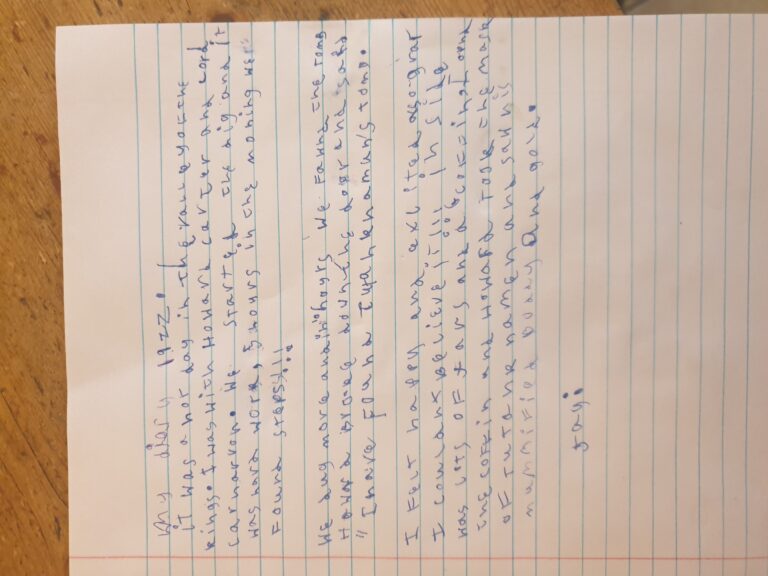 my diary 1922!
it was a hot day in the valley of the
kings. I was with Howard carter and lord
carnarvon. We started the dig and it
was hard work, 5 hours in the moning we
Found steps!!!
We dug more and in hours we Found the tomb
Howard Broke down the door and said
"I have Found Twahknamun's tomb.
I Felt happy and exlited
I couldnt Believe it!!! in side
was lots of Jars and a coffin
the coffin and Howard took the mask
of tutankhamen and saw his
mumified Boday and gold.
Jay.